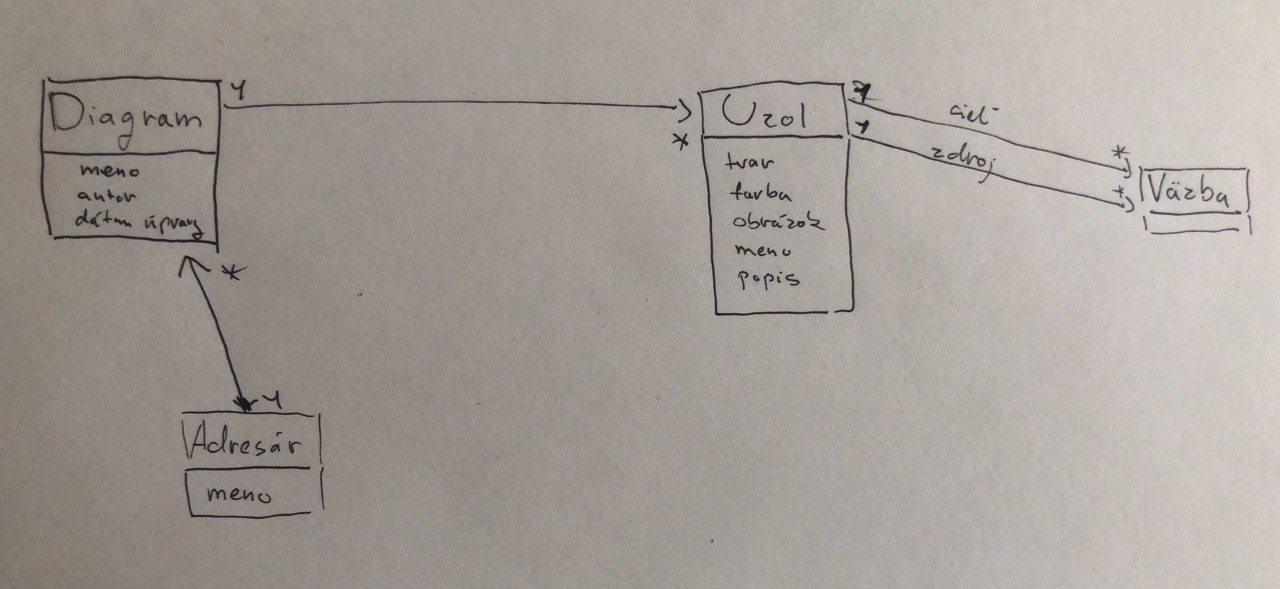 Diagram
meno
autor
dátum úpravy
1
*
Uzol
tvar
farba
obrázok
meno
popis
*
1
1
cieľ
zdroj
*
*
Väzba
*
1
Adresár
meno